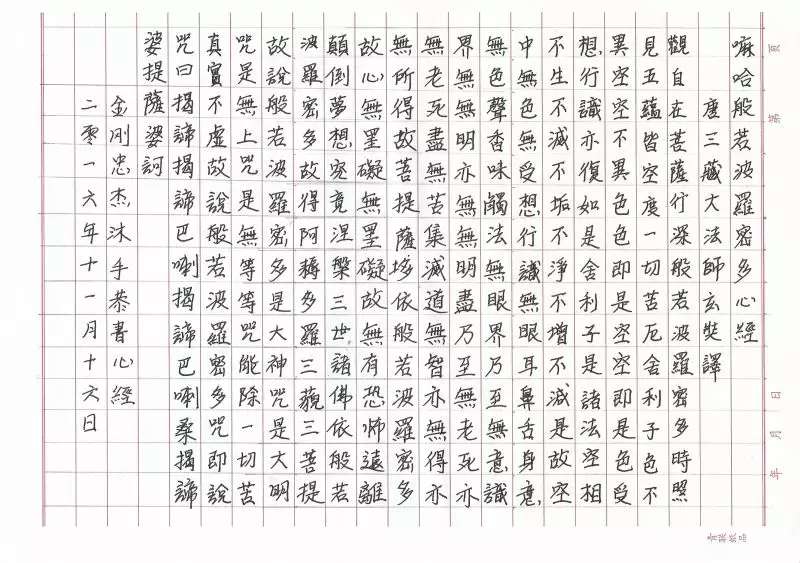 嘛哈般若波羅密多心經
唐三藏大法師玄奘譯
觀自在菩薩行深般若波羅密多時照
見五蘊皆空度一切苦厄舍利子色不
異空空不異色色即是空空即是色受
想行識亦復如是舍利子是諸法空相
不生不滅不垢不淨不增不減是故空
中無色無受想行識無眼耳鼻舌身意
無色聲香味觸法無眼界乃至無意識
界無無明亦無無明盡乃至無老死亦
無老死盡無苦集滅道無智亦無得亦
無所得故菩提薩埵依般若波羅密多
故心無罣礙無罣礙故無有恐怖遠離
顛倒夢想究竟涅槃三世諸佛依般若
波羅密多故得阿耨多羅三藐三菩提
故說般若波羅密多是大神咒是大明
咒是無上咒是無等等咒能除一切苦
真實不虛故說般若波羅密多咒即說
咒曰揭諦揭諦巴喇揭諦巴喇桑揭諦
婆提薩婆訶
金剛忠杰沐手恭書心經
二零一六年十一月十六日
頁 第 年 月 日